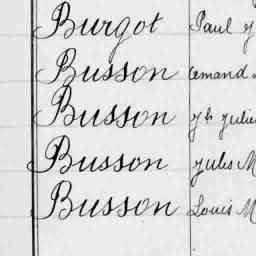 Burgot Paul
Busson
Busson
Busson Jules M
Busson Louis M